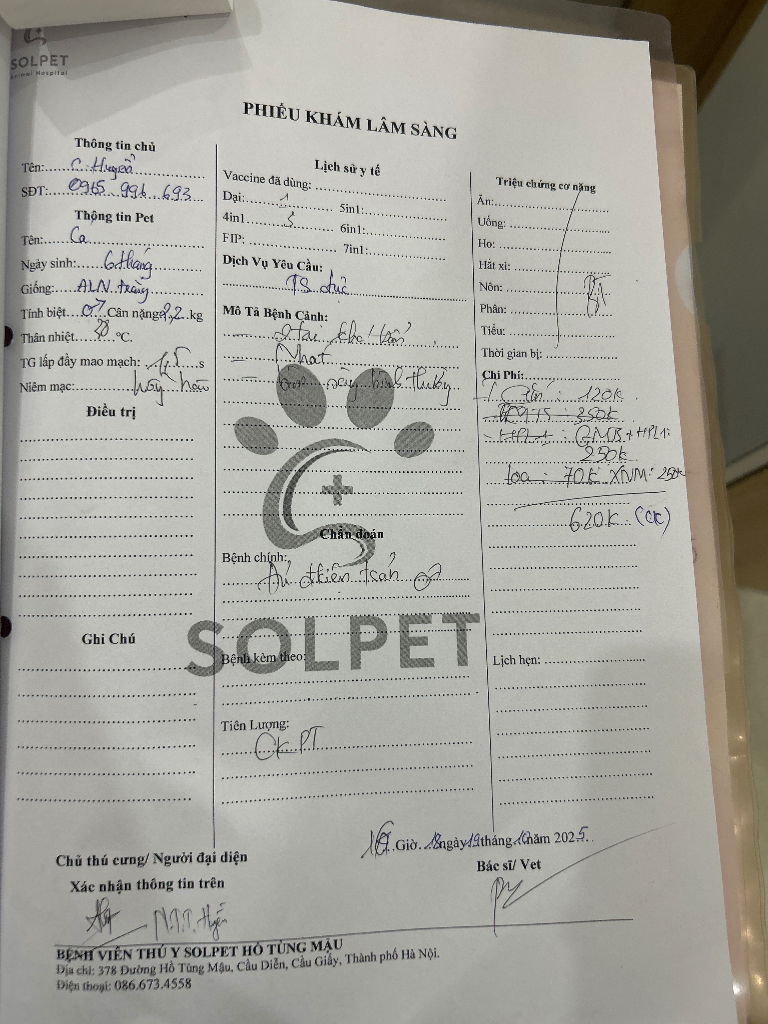 SOLPET
Animal Hospital
PHIẾU KHÁM LÂM SÀNG
Thông tin chủ
Tên: C. Huyền
SĐT: 0915 996 693
Thông tin Pet
Tên: Ca
Ngày sinh: 6 tháng
Giống: ALN trắng
Tính biệt ♂ Cân nặng 2,2 kg
Thân nhiệt °C.
TG lấp đầy mao mạch: s
Niêm mạc: hồng hào
Điều trị
Ghi Chú
Lịch sử y tế
Vaccine đã dùng:
Dại: 1 5in1:
4in1 3 6in1:
FIP: 7in1:
Dịch Vụ Yêu Cầu:
TS đực
Mô Tả Bệnh Cảnh:
- Nhát
bình thường
Chẩn đoán
Bệnh chính:
thiến ♂
SOLPET
Bệnh kèm theo:
Tiên Lượng:
CK PT
Triệu chứng cơ năng
Ăn:
Uống:
Ho:
Hắt xì:
Nôn:
Phân:
Tiểu:
BT
Thời gian bị:
Chi Phí:
120k
350k
HPL1 : GMB + HPL1:
250k
Loa: 70k XNM: 250k
620k (CK)
Lịch hẹn:
Giờ. 18 ngày 19 tháng 10 năm 2025
Chủ thú cưng/ Người đại diện
Xác nhận thông tin trên
Bác sĩ/ Vet
N.T.T. Huyền
BỆNH VIỆN THÚ Y SOLPET HỒ TÙNG MẬU
Địa chỉ: 378 Đường Hồ Tùng Mậu, Cầu Diễn, Cầu Giấy, Thành phố Hà Nội.
Điện thoại: 086.673.4558